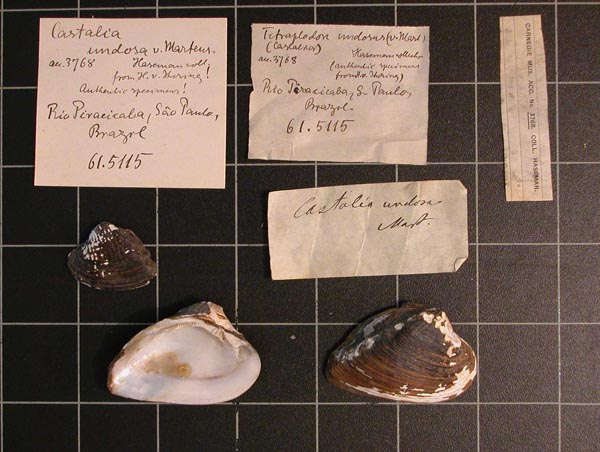 Castalia
undosa v. Martens.
ac. 3768 Haseman coll,
from H. v. Ihering!
Authentic specimens!
Rio Piracicaba, São Paulo,
Brazil
61.5115
Tetraplodon undosus (v. Mart.)
(Castalia)
ac. 3768 Haseman collectn.
(authentic specimens
from Ihering)
Rio Piracicaba, S. Paulo,
Brazil.
61.5115
CARNEGIE MUS. ACC. No. 3768. COLL. HASEMAN.
Castalia undosa
Mart.